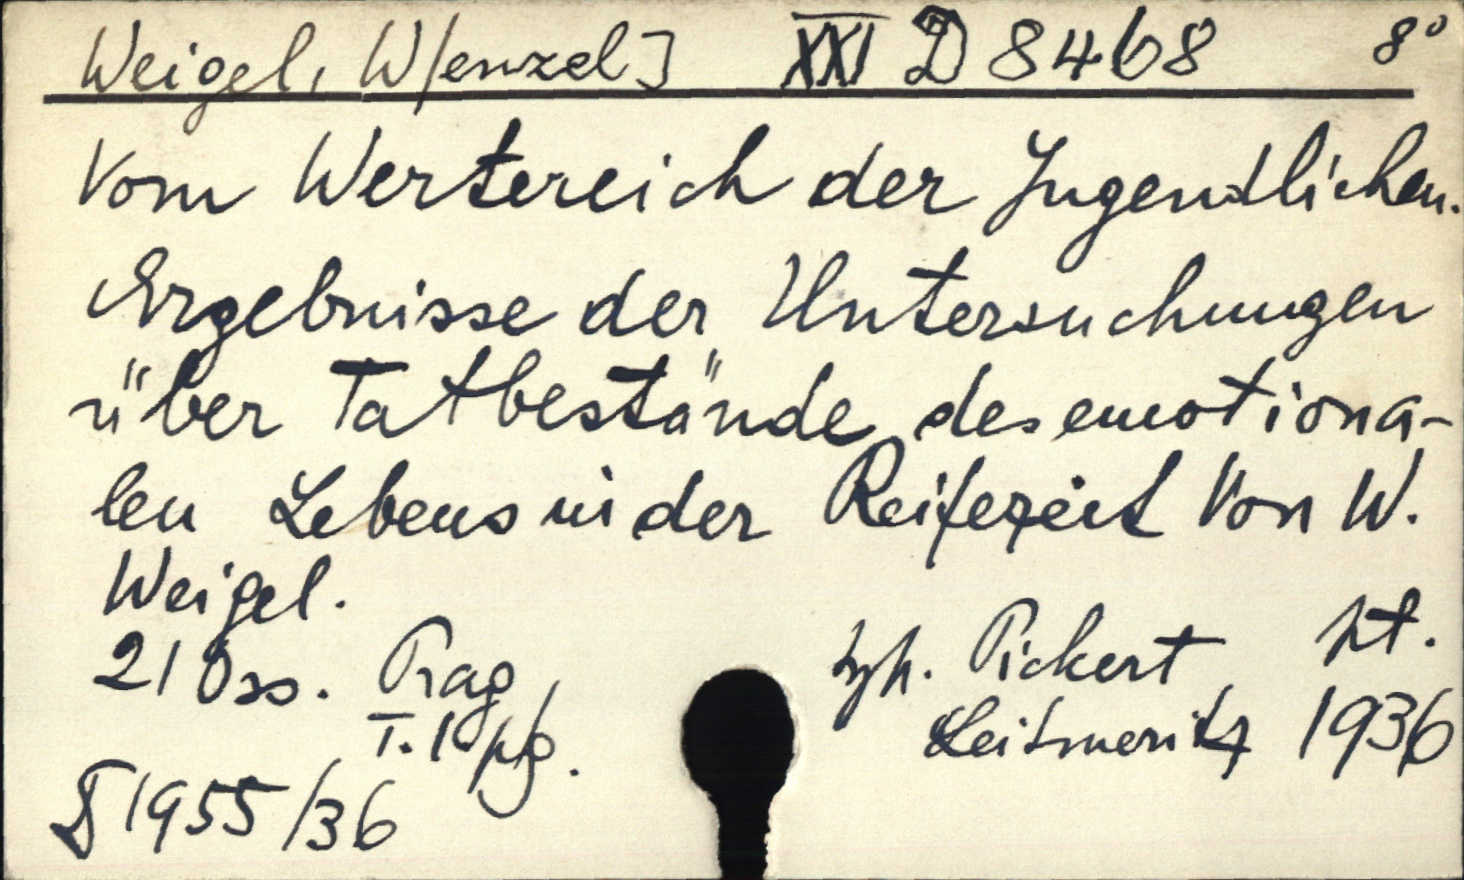 Weigel, W[enzel] XXI D 8468 8°
Vom Wertereich der Jugendlichen.
Ergebnisse der Untersuchungen
über Tatbestände des emotiona-
len Lebens in der Reifezeit Von W.
Weigel.
210 ss. Prag, Pickert
T. Leitmeritz 1936
D 1955/36